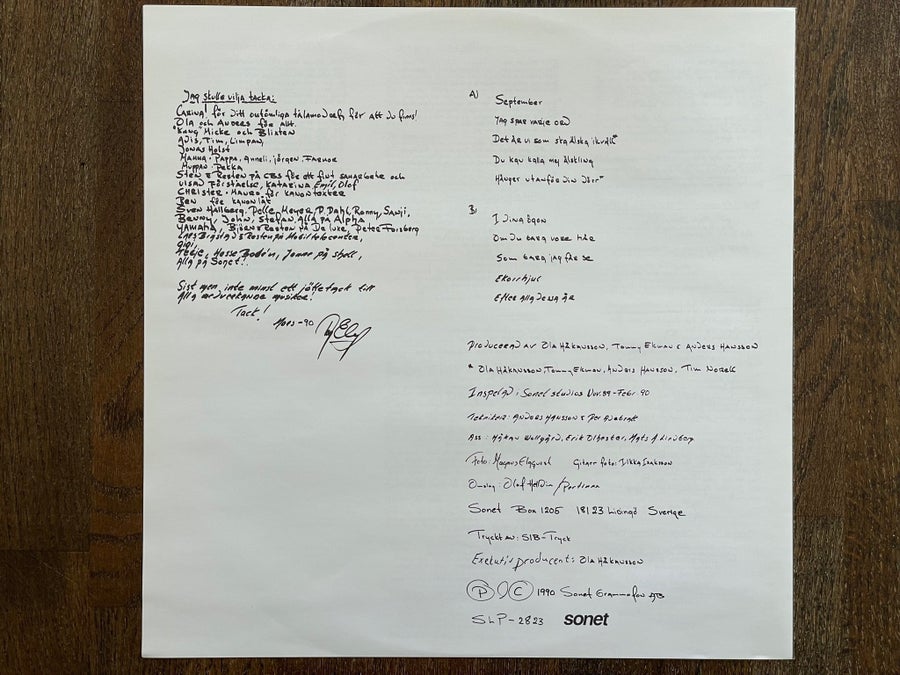 Jag skulle vilja tacka:
CARINA! för ditt outömliga tålamod och för att du finns!
OLA och ANDERS för allt
"Kang Micke och Blixten
Avis, Tim, Limpan,
JONAS HOLST
MAMMA-PAPPA, Anneli, Jörgen, FARMOR
Muppan, Pekka
STEN & Resten på CBS för ett fint samarbete och
visad Förståelse, KATARINA Emil, Olof
CHRISTER, MAURO för KANONTEXTER
Ben för KANONLÅT
Sven Hallberg, Pelle, Meyer, P. Dahl, Ronny, Sanji,
BENNY, JOHN, STEFAN, Alla på Alpha
YAMAHA, Björn & Resten på De luxe, Peter Forsberg
LARS & Resten på Mobiltelecenter,
GIGI,
Hasse Bodén, Janne på Shell,
Alla på Sonet!
Sist men inte minst ett jättetack till
Alla medverkande musiker!
Tack!
MARS-90
A)
September
JAG SPAR VARJE ORD
Det är vi som ska älska ikväll*
Du kan kalla mej älskling
Hänger utanför din dörr*
B)
I DINA ögon
Om du bara vore här
Som bara jag får se
Ekorrhjul
Efter Alla DENA ÅR
PRODUCERAD AV OLA HÅKANSSON, Tommy Ekman & ANDERS HANSSON
* OLA HÅKANSSON, Tommy Ekman, ANDERS HANSSON, Tim NORELL
Inspelad: Sonet studios Nov. 89-Febr 90
Tekniker: ANDERS HANSSON & Per Adebratt
ASS: HÅKAN Wollgård, Erik Olhester, Mats A Lindberg
Foto: Magnus Elgquist Gitarr foto: MIKKA ISAKSSON
Omslag: Olof Helldin / Perdiman
Sonet Box 1205 181 23 Lidingö Sverige
Tryckt av: SIB-Tryck
Exekutiv producent: OLA HÅKANSSON
Ⓟ & Ⓒ 1990 Sonet Grammofon AB
SLP-2823 sonet